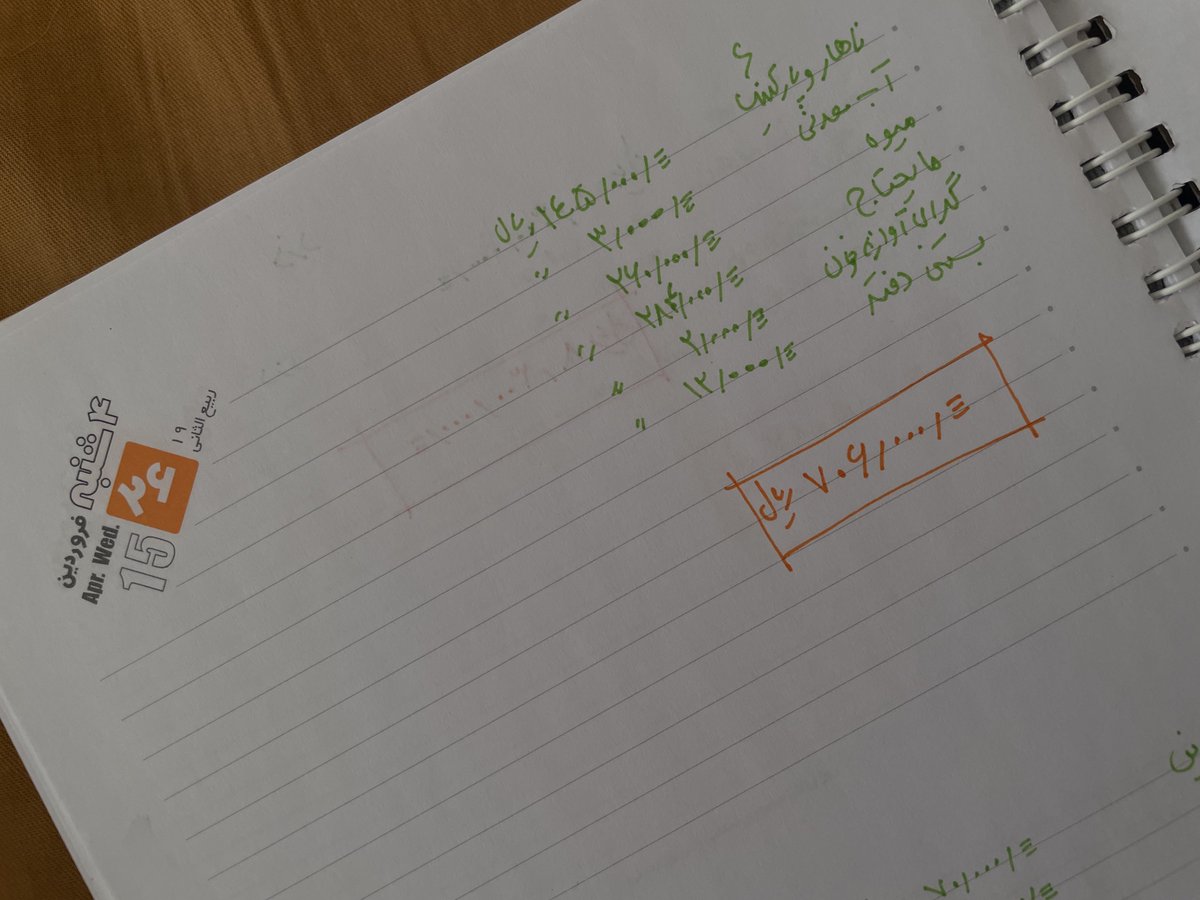 ۴ شنبه
۲۶
فروردین
۱۹
ربیع الثانی
Apr. Wed.
15
ناهار و پارکینگ ۱۴۵/۰۰۰/= ریال
آب معدنی ۳/۰۰۰/= "
میوه ۲۶۰/۰۰۰/= "
مایحتاج ۲۸۴/۰۰۰/= "
گدای آوازه خوان ۲/۰۰۰/= "
بستنی دفتر ۱۲/۰۰۰/= "
۷۰۶/۰۰۰/= ریال
۷۰/۰۰۰/=